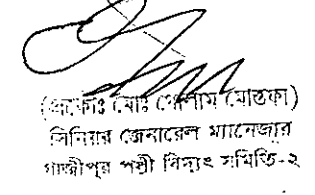 (প্রকৌঃ মোঃ গোলাম মোস্তফা)
সিনিয়র জেনারেল ম্যানেজার
গাজীপুর পল্লী বিদ্যুৎ সমিতি-২